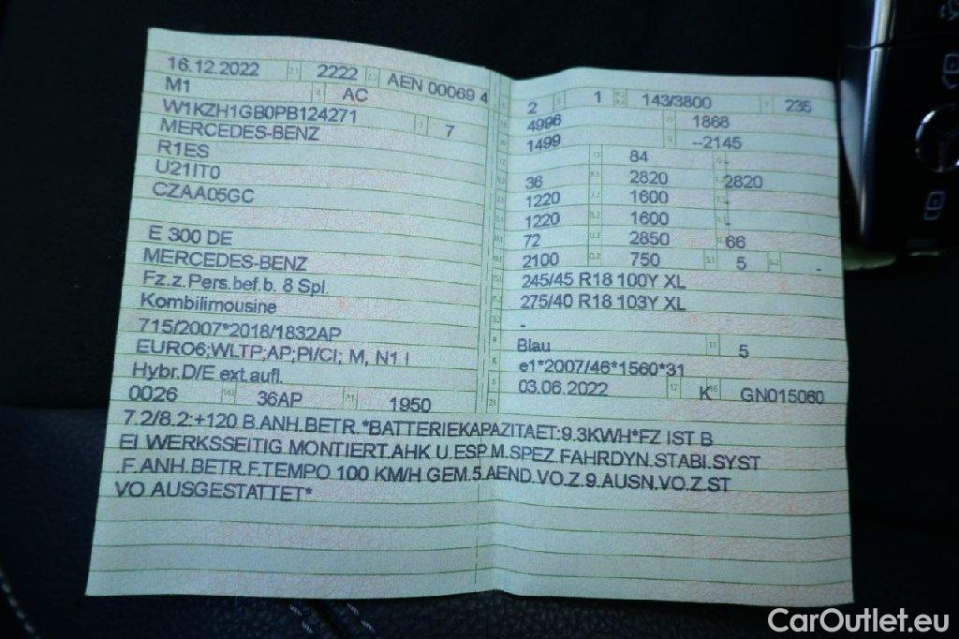 16.12.2022 2222 AEN 00069 4
M1 AC
W1KZH1GB0PB124271 7
MERCEDES-BENZ
R1ES
U21IT0
CZAA05GC
E 300 DE
MERCEDES-BENZ
Fz.z.Pers.bef.b. 8 Spl.
Kombilimousine
715/2007*2018/1832AP
EURO6;WLTP;AP;PI/CI; M, N1 I
Hybr.D/E ext.aufl.
0026 36AP 1950
2 1 143/3800 235
4996 1868
1499 --2145
84 -
36 2820 2820
1220 1600 -
1220 1600 -
72 2850 66
2100 750 5 -
245/45 R18 100Y XL
275/40 R18 103Y XL
-
Blau 5
e1*2007/46*1560*31
03.06.2022 K GN015060
7.2/8.2:+120 B.ANH.BETR.*BATTERIEKAPAZITAET:9.3KWH*FZ IST B
EI WERKSSEITIG MONTIERT.AHK U.ESP.M.SPEZ.FAHRDYN.STABI.SYST
.F.ANH.BETR.F.TEMPO 100 KM/H GEM.5.AEND.VO.Z.9.AUSN.VO.Z.ST
VO AUSGESTATTET*
CarOutlet.eu